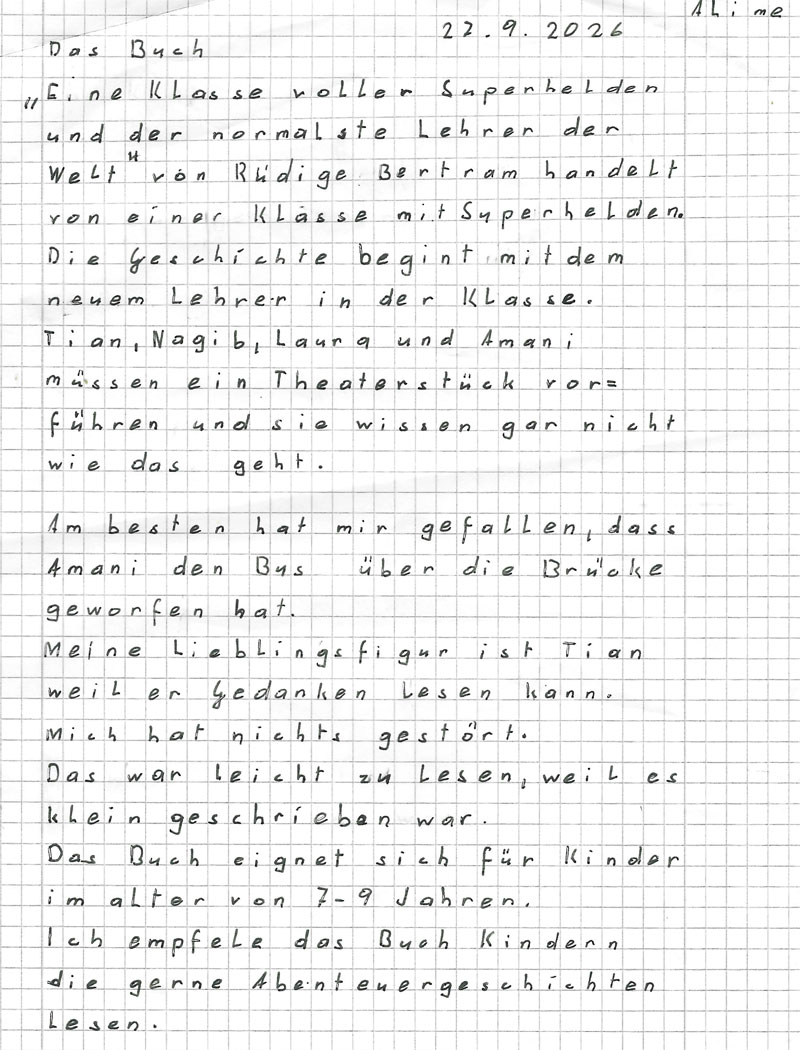 Ahime
22.9.2026
Das Buch
„Eine Klasse voller Superhelden
und der normalste Lehrer der
Welt" von Rüdige Bertram handelt
von einer Klasse mit Superhelden.
Die Geschichte begint mit dem
neuem Lehrer in der Klasse.
Tian, Nagib, Laura und Amani
müssen ein Theaterstück vor=
führen und sie wissen gar nicht
wie das geht.
Am besten hat mir gefallen, dass
Amani den Bus über die Brücke
geworfen hat.
Meine Lieblingsfigur ist Tian
weil er Gedanken lesen kann.
Mich hat nichts gestört.
Das war leicht zu lesen, weil es
klein geschrieben war.
Das Buch eignet sich für Kinder
im alter von 7-9 Jahren.
Ich empfele das Buch Kindern
die gerne Abenteuergeschichten
lesen.